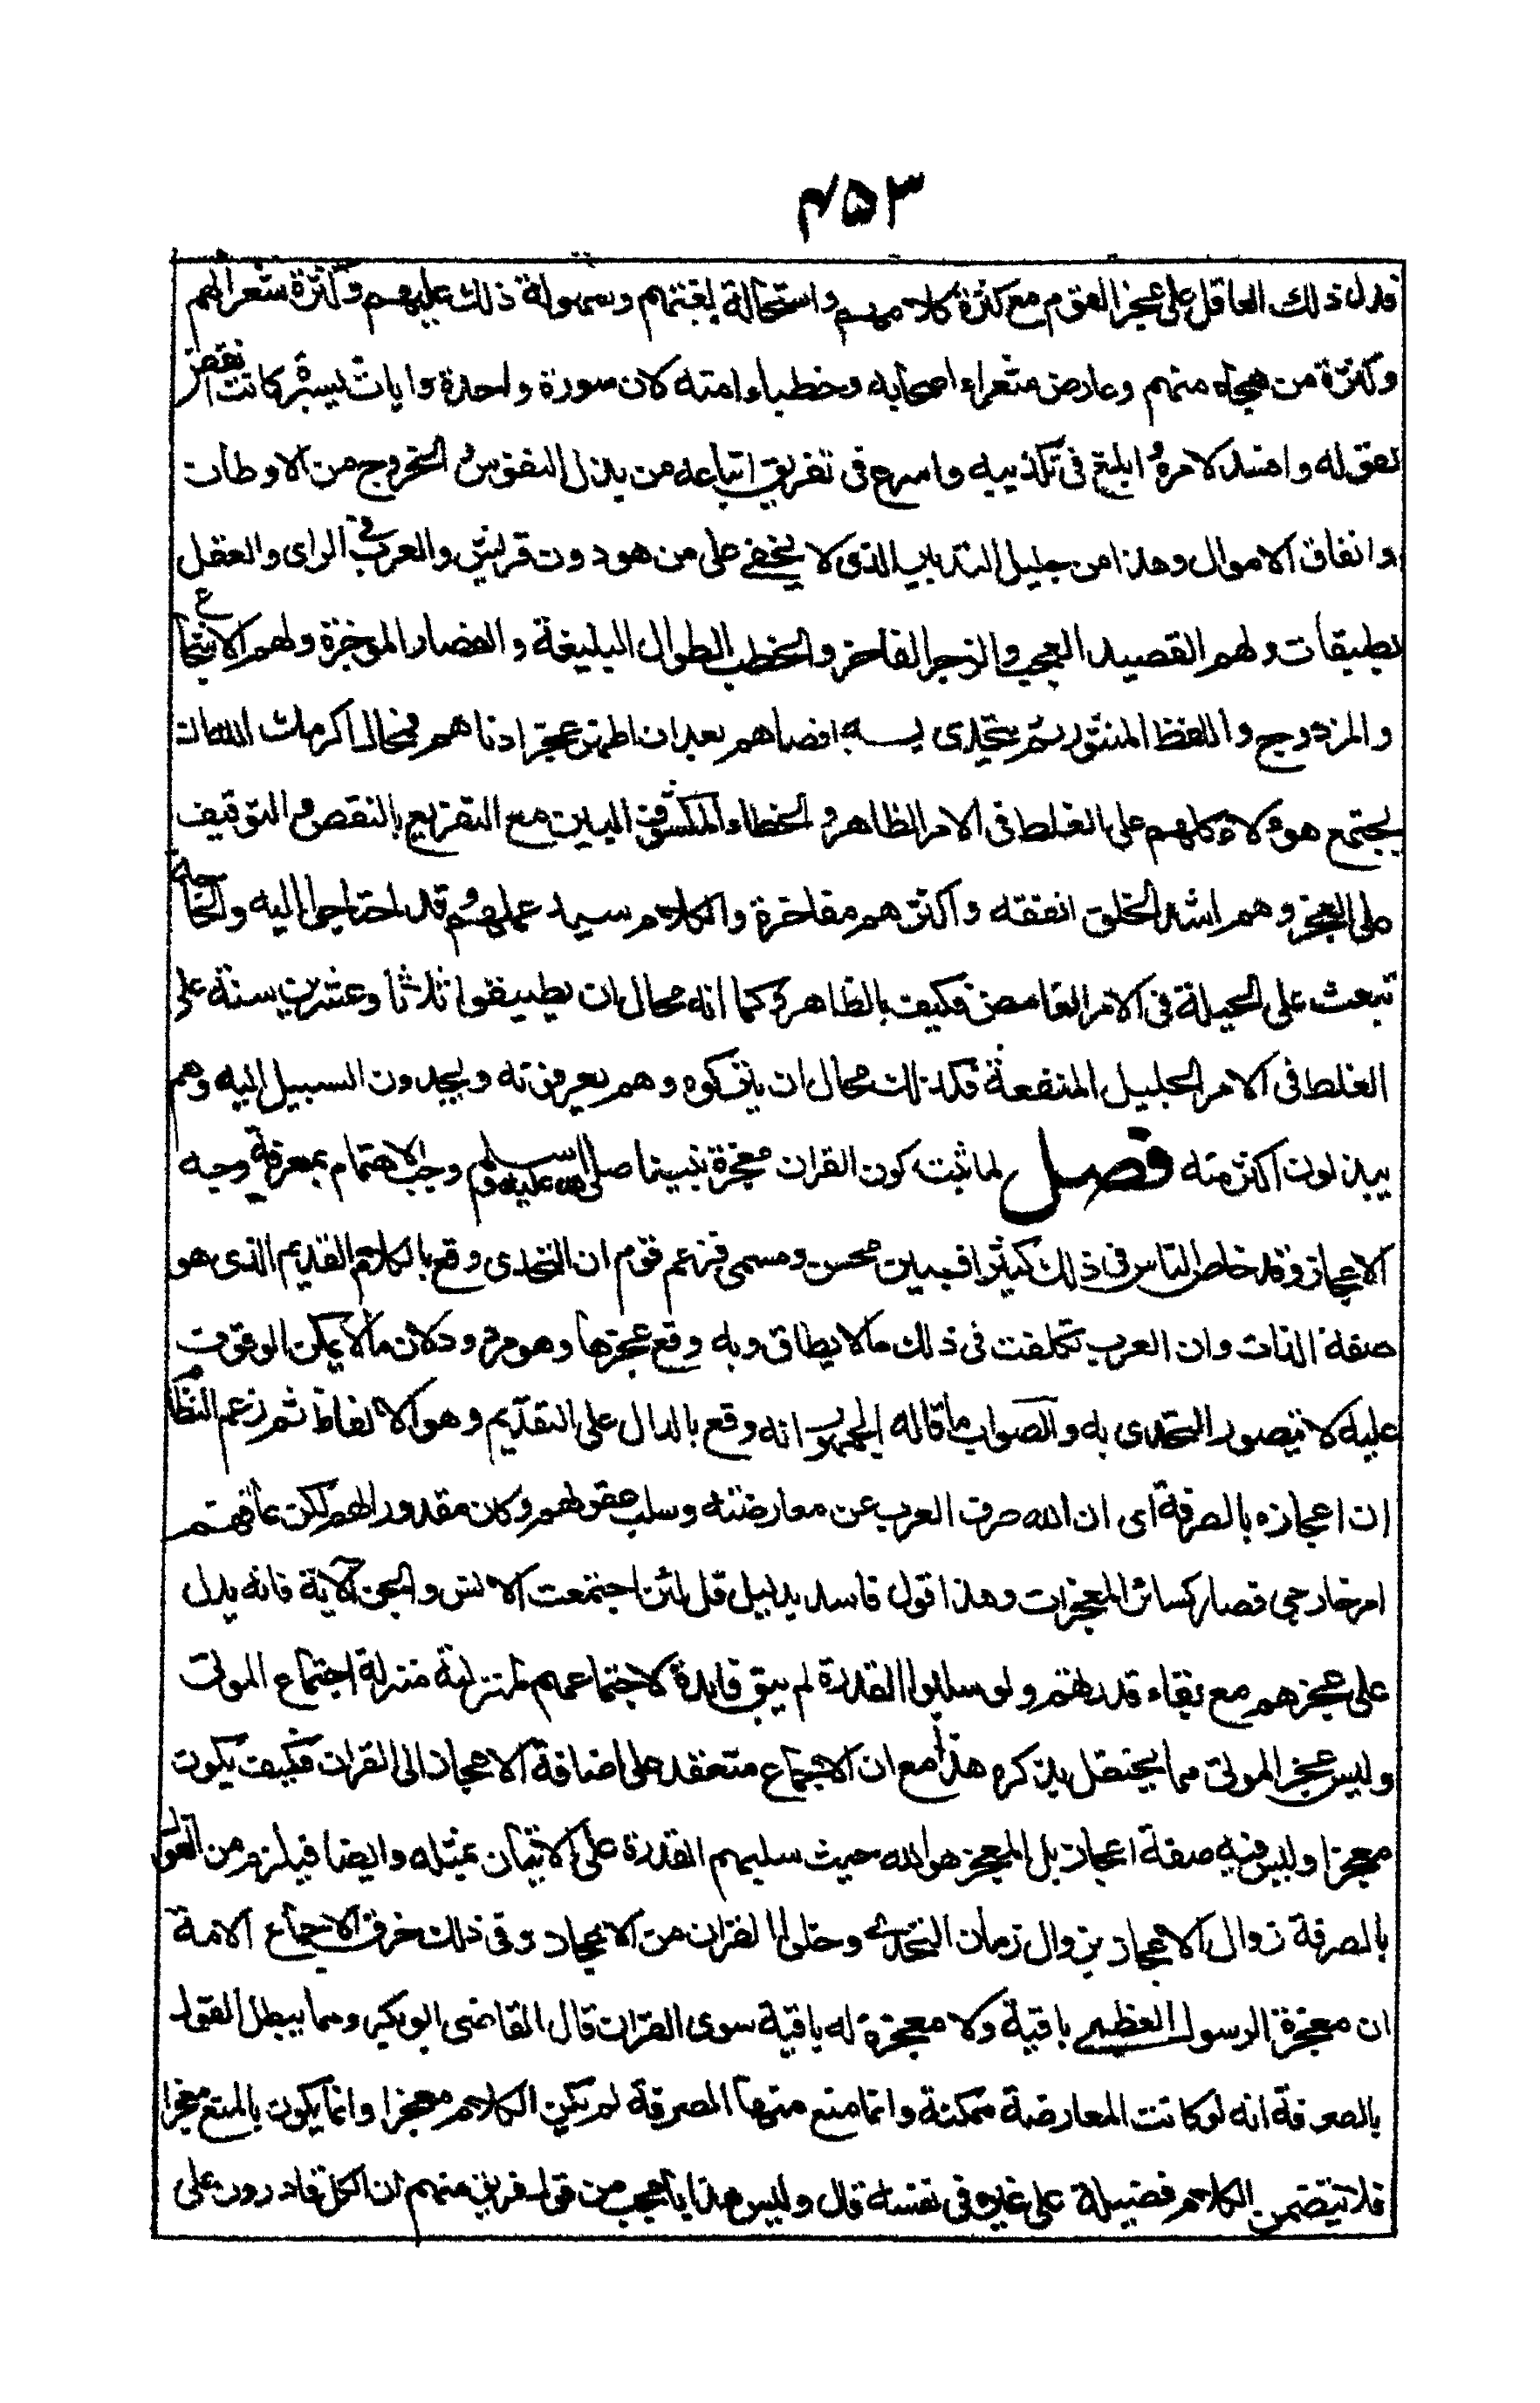 ٤٥٣
فدل ذلك العاقل على عجز القوم مع كثرة كلامهم واستحالة لغتهم وسهولة ذلك عليهم وكثرة شعرائهم
وكثرة من هجاه منهم وعارض شعراء اصحابه وخطباء امته لان سورة واحدة وايات يسيرة كانت انقض
لقوله وافسد لامره وابلغ فى تكذيبه واسرع فى تفريق اتباعه من بذل النفوس والخروج من الاوطان
وانفاق الاموال وهذا من جليل التدبير الذى لا يخفى على من هو دون قريش والعرب فى الراى والعقل
بطبقات ولهم القصيد العجيب والرجز الفاخر والخطب الطوال البليغة والقصار الموجزة ولهم الاسجاع
والمزدوج واللفظ المنثور ثم يتحدى به اقصاهم بعد ان اظهر عجز ادناهم فمحال اكرمك الله ان
يجتمع هؤلاء كلهم على الغلط فى الامر الظاهر والخطاء المكشوف المبين مع التقريع بالنقص والتوقيف
على العجز وهم اشد الخلق انفقه واكثرهم مفاخرة والكلام سيد عملهم وقد احتاجوا اليه والحاجة
تبعث على الحيلة فى الامر الغامض فكيف بالظاهر وكما انه محال ان يطيقوا ثلاثا وعشرين سنة على
الغلط فى الامر الجليل المنفعة فكذلك محال ان يتركوه وهم يعرفونه ويجدون السبيل اليه وهم
يبذلون اكثر منه فصل لما ثبت كون القران معجزة نبينا صلى الله عليه وسلم وجب الاهتمام بمعرفة وجه
الاعجاز وقد خاض الناس فى ذلك كثيرا فبين محسن ومسمى فزعم قوم ان التحدى وقع بالكلام القديم الذى هو
صفة الذات وان العرب تكلفت فى ذلك ما لا يطاق وبه وقع عجزها وهو مردود لان ما لا يمكن الوقوف
عليه لا يتصور التحدى به والصواب ما قاله الجمهور انه وقع بالدال على القديم وهو الالفاظ ثم زعم النظام
ان اعجازه بالصرفة اى ان الله صرف العرب عن معارضته وسلب عقولهم وكان مقدورا لهم لكن عاقهم
امر خارجى فصار كسائر المعجزات وهذا قول فاسد بدليل قل لئن اجتمعت الانس والجن الآية فانه يدل
على عجزهم مع بقاء قدرتهم ولو سلبوا القدرة لم يبق فايدة لاجتماعهم لمنزلته منزلة اجتماع الموتى
وليس عجز الموتى مما يحتفل بذكره هذا مع ان الاجماع منعقد على اضافة الاعجاز الى القران فكيف يكون
معجزا وليس فيه صفة اعجاز بل المعجز هو الله حيث سلبهم القدرة على الاتيان بمثله وايضا فيلزم من القول
بالصرفة زوال الاعجاز بزوال زمان التحدى وخلو القران من الاعجاز وفى ذلك خرق لاجماع الامة
ان معجزة الرسول العظيم باقية ولا معجزة له باقية سوى القران قال القاضى ابو بكر ومما يبطل القول
بالصرفة انه لو كانت المعارضة ممكنة وانما منع منها الصرفة لم يكن الكلام معجزا وانما يكون بالمنع معجزا
فلا يتضمن الكلام فضيلة على غيره فى نفسه قال وليس هذا باعجب من قول فريق منهم ان الكل قادرون على